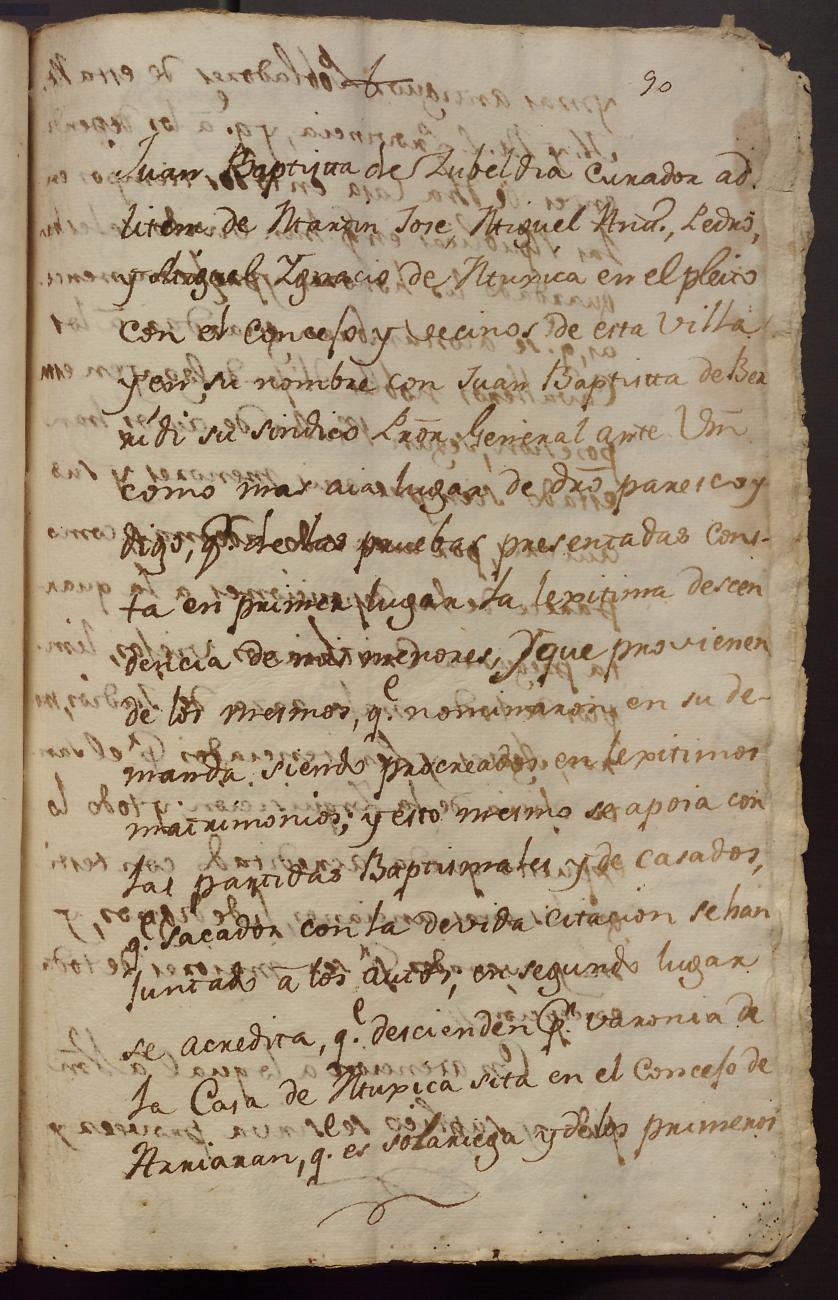 90
Juan Baptista de Zubeldia curador ad
litem de Martin Jose Miguel Ant.º, Pedro,
y Miguel Ygnacio de Muxica en el pleito
con el Concejo y vecinos de esta Villa
y en su nombre con Juan Baptista de Ber
ridi su sindico Pror. General ante Vm
como mas aia lugar de dro paresco y
digo, q.e de las pruebas presentadas cons-
ta en primer lugar la lexitima descen
dencia de mis menores, y que provienen
de los mesmos, q.e nominaron en su de-
manda siendo procreados en lexitimos
matrimonios; y esto mesmo se apoia con
las partidas Baptismales y de casados,
q.e sacados con la devida citacion se han
Juntado a los autos, en segundo lugar
se acredita, q.e descienden p.r varonia de
la Casa de Muxica sita en el Concejo de
Arriaran, q.e es solariega y de los primeros